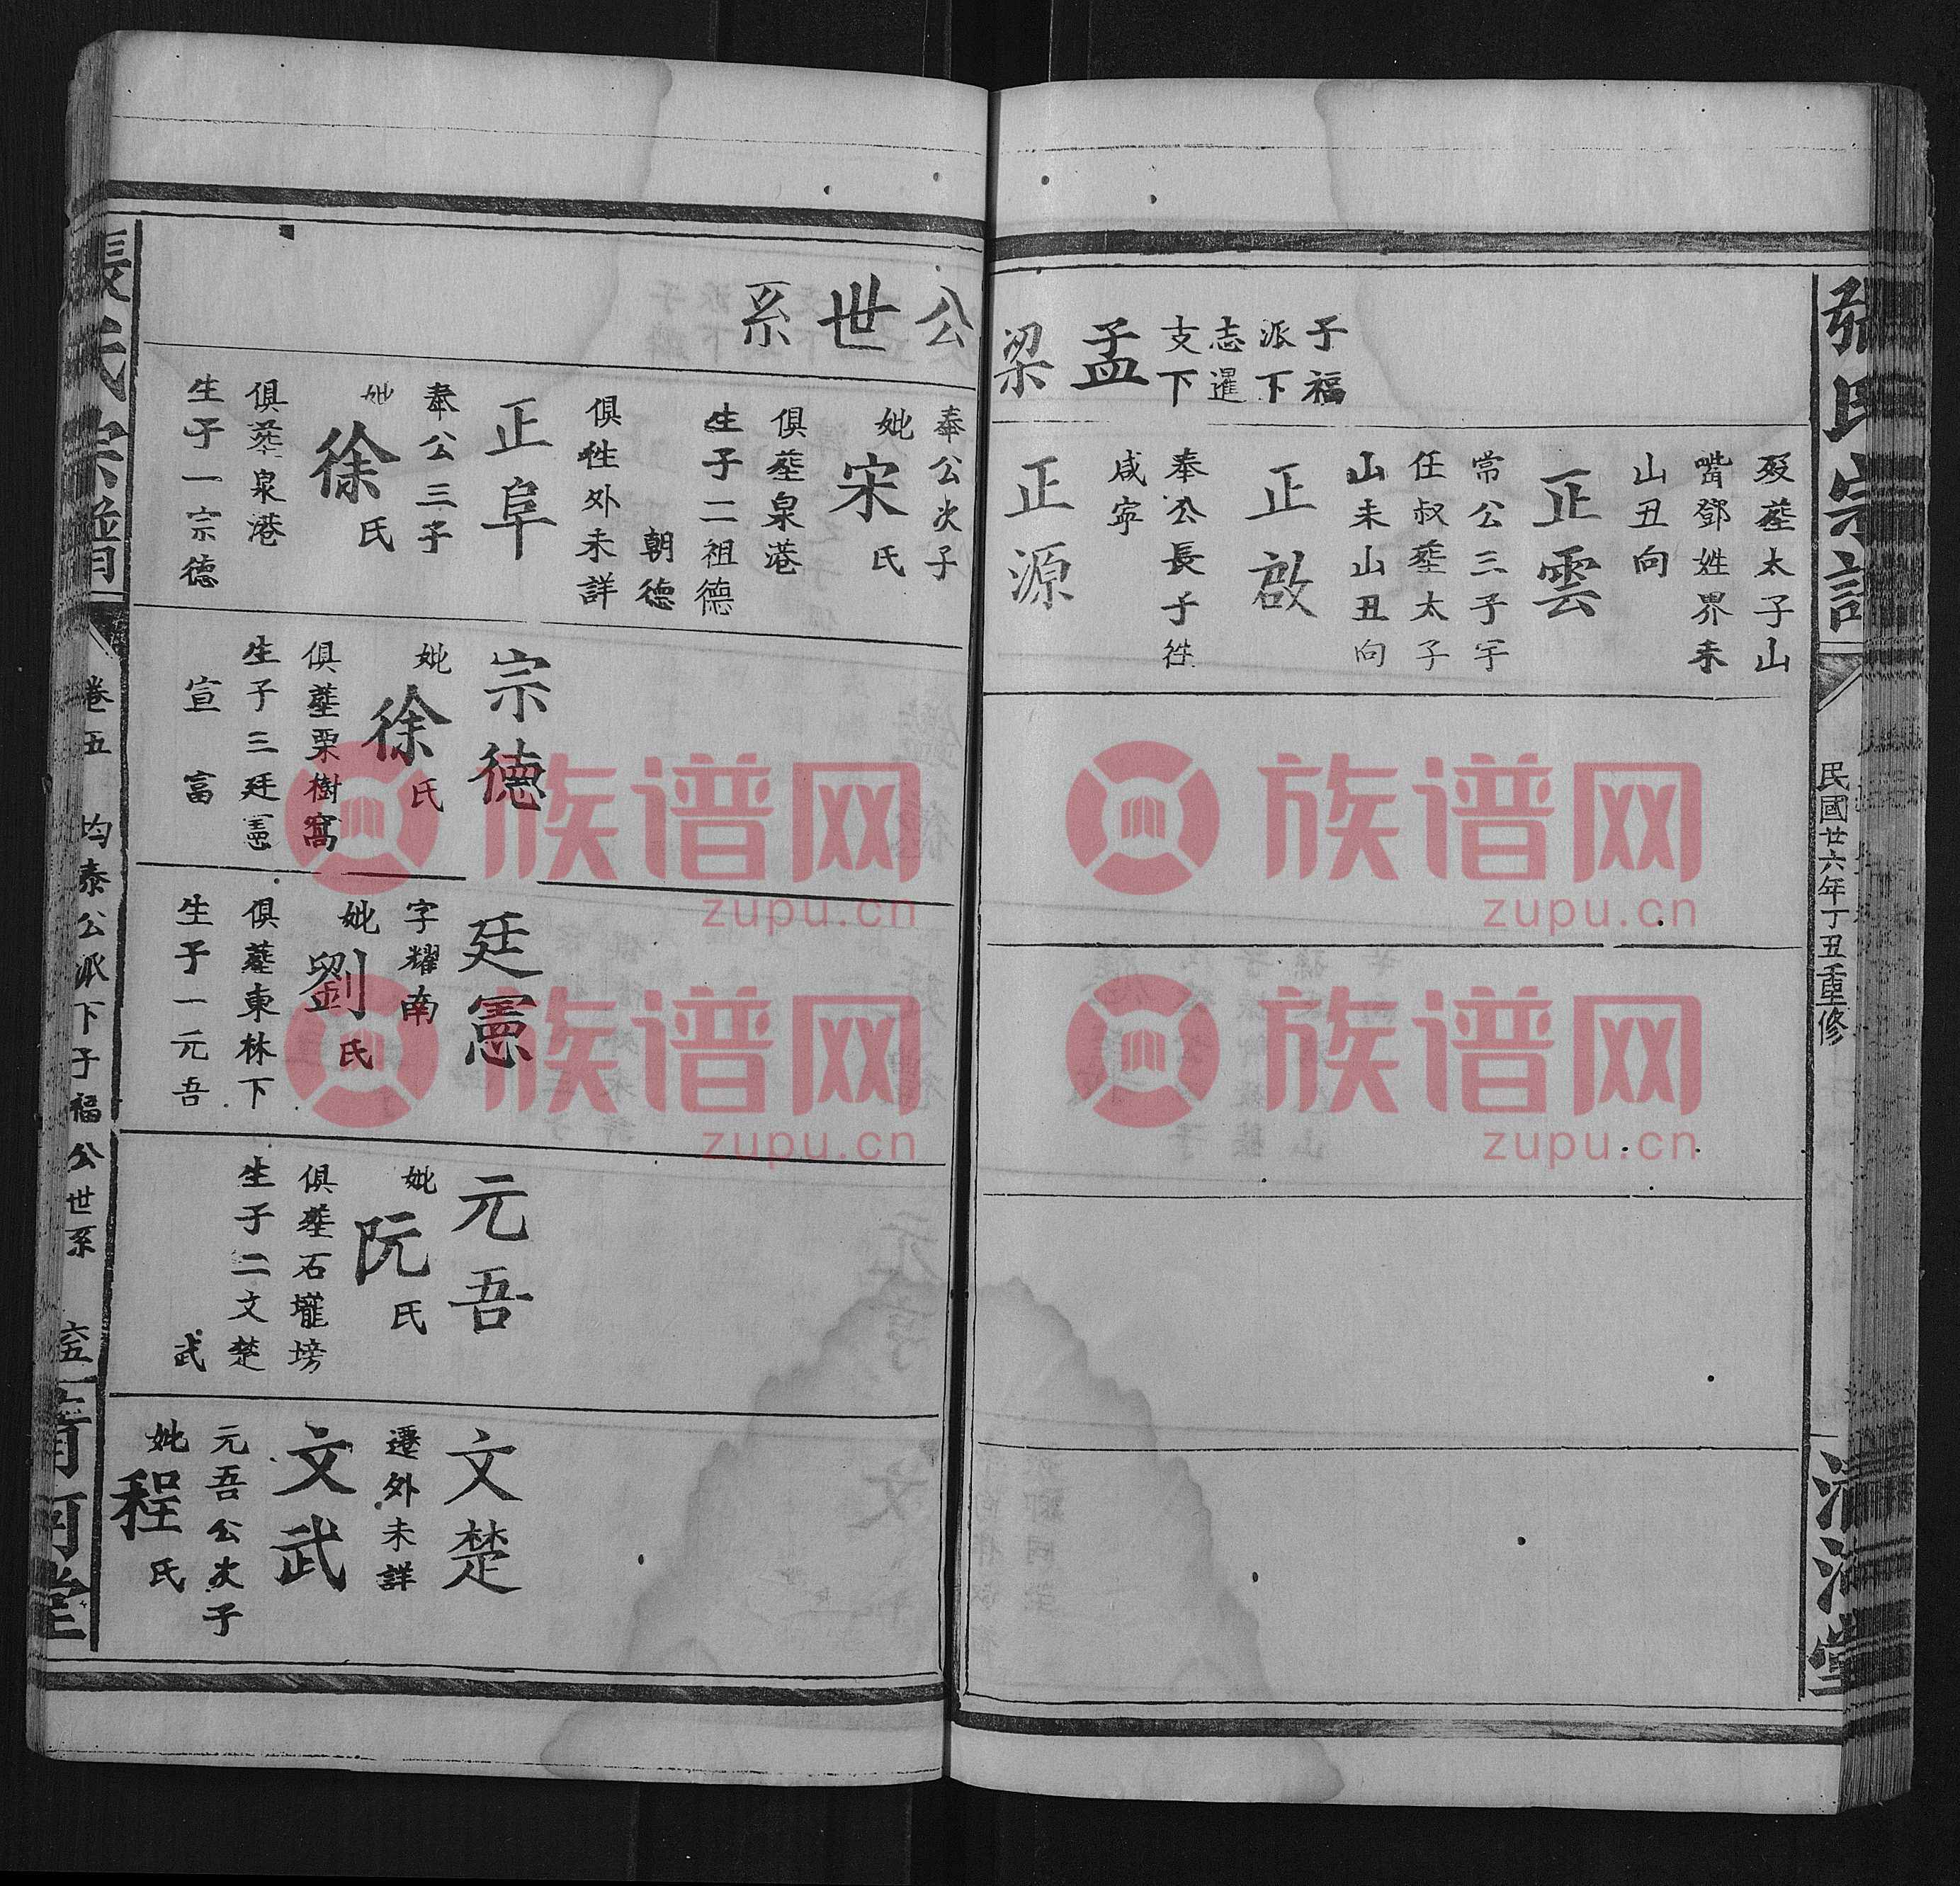 張氏宗譜
民國廿六年丁丑重修
清河堂
子福
派下
志暹
支下
孟梁
公世系
歿塟太子山
嘴鄧姓界未
山丑向
正雲
常公三子字
任叔塟太子
山未山丑向
正啟
奉公長子徃
咸寧
正源
奉公次子
妣宋氏
俱塟泉港
生子二祖德
朝德
俱徃外未詳
正阜
奉公三子
妣徐氏
俱塟泉港
生子一宗德
宗德
妣徐氏
俱塟栗樹窩
生子三廷憲
宣富
廷憲
字耀南
妣劉氏
俱塟東林下
生子一元吾
元吾
妣阮氏
俱塟石壠塝
生子二文楚
武
文楚
遷外未詳
文武
元吾公次子
妣程氏
張氏宗譜
卷五
均泰公派下子福公世系
六五
清河堂
族谱网
zupu.cn
族谱网
zupu.cn
族谱网
zupu.cn
族谱网
zupu.cn